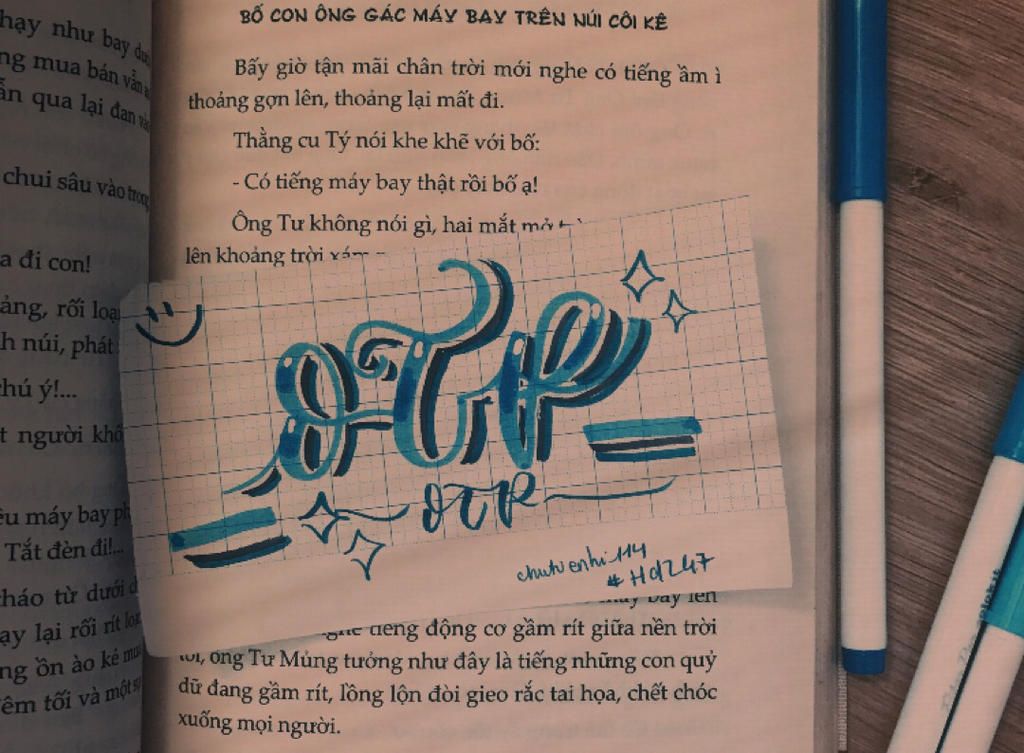 hạy như bay dưới
ng mua bán vẫn
ẫn qua lại đan vào
chui sâu vào trong
a đi con!
ảng, rối loạ
h núi, phát
hú ý!...
t người khô
ều máy bay ph
Tắt đèn đi!...
háo từ dưới
ay lại rối rít loạ
ng ồn ào kẻ mu
êm tối và một
BỐ CON ÔNG GÁC MÁY BAY TRÊN NÚI CÔI KÊ
Bấy giờ tận mãi chân trời mới nghe có tiếng ầm ì
thoảng gợn lên, thoảng lại mất đi.
Thằng cu Tý nói khe khẽ với bố:
- Có tiếng máy bay thật rồi bố ạ!
Ông Tư không nói gì, hai mắt mở
lên khoảng trời xám
OTP
OTP
chutuenhi114
#Hd247
máy bay lên
nghe tiếng động cơ gầm rít giữa nền trời
tối, ông Tư Mủng tưởng như đây là tiếng những con quỷ
dữ đang gầm rít, lồng lộn đòi gieo rắc tai họa, chết chóc
xuống mọi người.